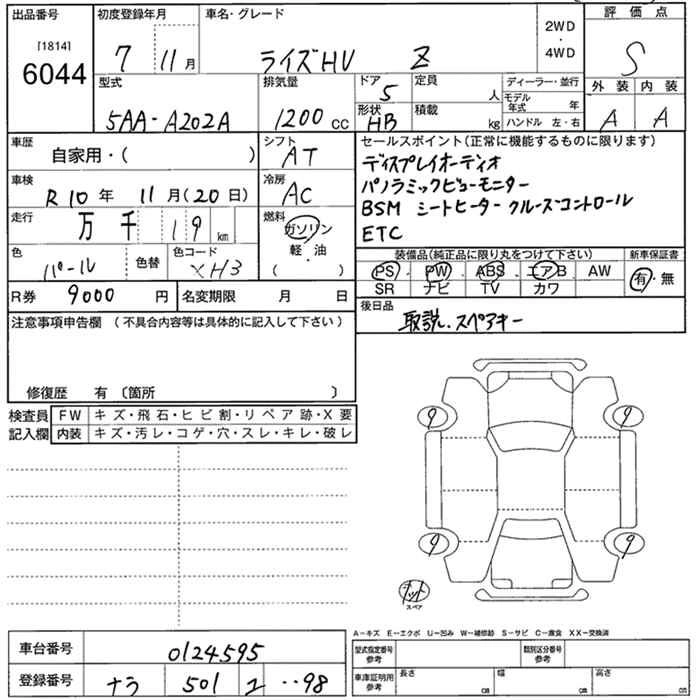 出品番号 初度登録年月 車名・グレード 2WD・4WD 評価点
[1814]
6044 7 11月 ライズHV Z S
型式 排気量 ドア 定員 ディーラー・並行 外装 内装
5AA-A202A 1200 CC 5 人 モデル年式 年 A A
形状 積載 ハンドル 左・右
HB kg
車歴 シフト セールスポイント(正常に機能するものに限ります)
自家用・( ) AT ディスプレイオーディオ
車検 冷房 パノラミックビューモニター
R10年 11月(20日) AC BSM シートヒーター クルーズコントロール
走行 燃料 ETC
万 千 19 km ガソリン・軽油 ( )
装備品(純正品に限り丸をつけて下さい) 新車保証書
色 色替 色コード PS・PW・ABS・エアB AW 有・無
パール XH3 SR ナビ TV カワ
R券 9000 円 名変期限 月 日 後日品
取説.スペアキー
注意事項申告欄(不具合内容等は具体的に記入して下さい)
修復歴 有〔箇所 〕
検査員記入欄 FW キズ・飛石・ヒビ割・リペア跡・X要
内装 キズ・汚レ・コゲ・穴・スレ・キレ・破レ
9 9
9 9
キット
スペア
A-キズ E-エクボ U-凹み W-補修跡 S-サビ C-腐食 XX-交換済
車台番号 0124595 型式指定番号 参考 類別区分番号 参考
登録番号 ナラ 501 ユ ・・98 車庫証明用 参考 長さ cm 幅 cm 高さ cm